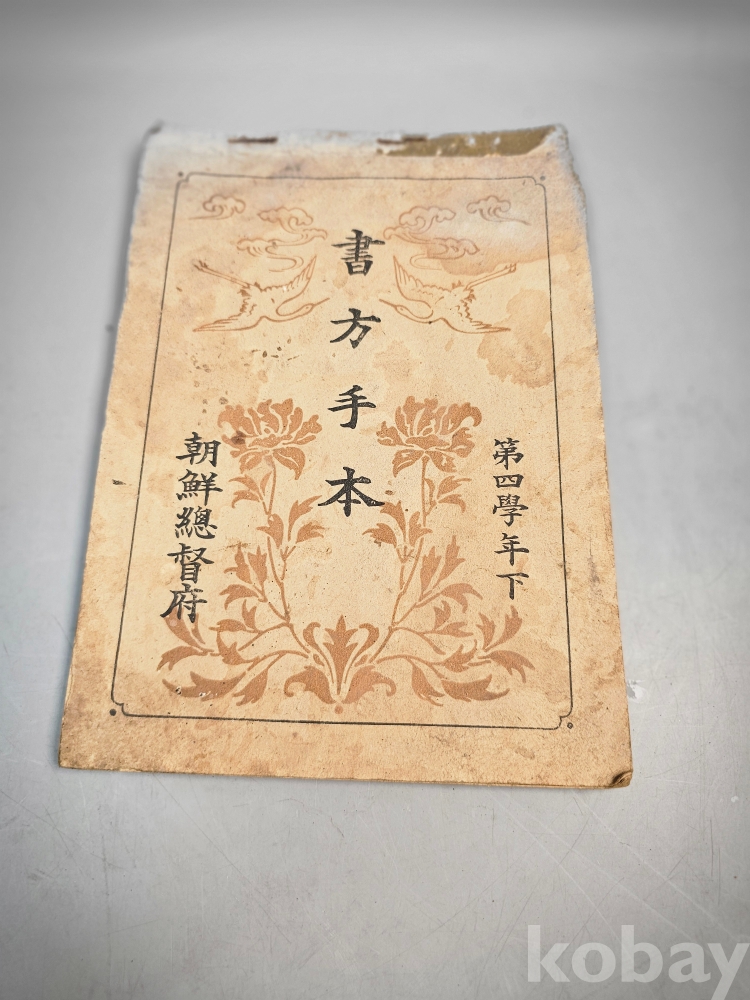 第四學年下
書方手本
朝鮮總督府
kobay